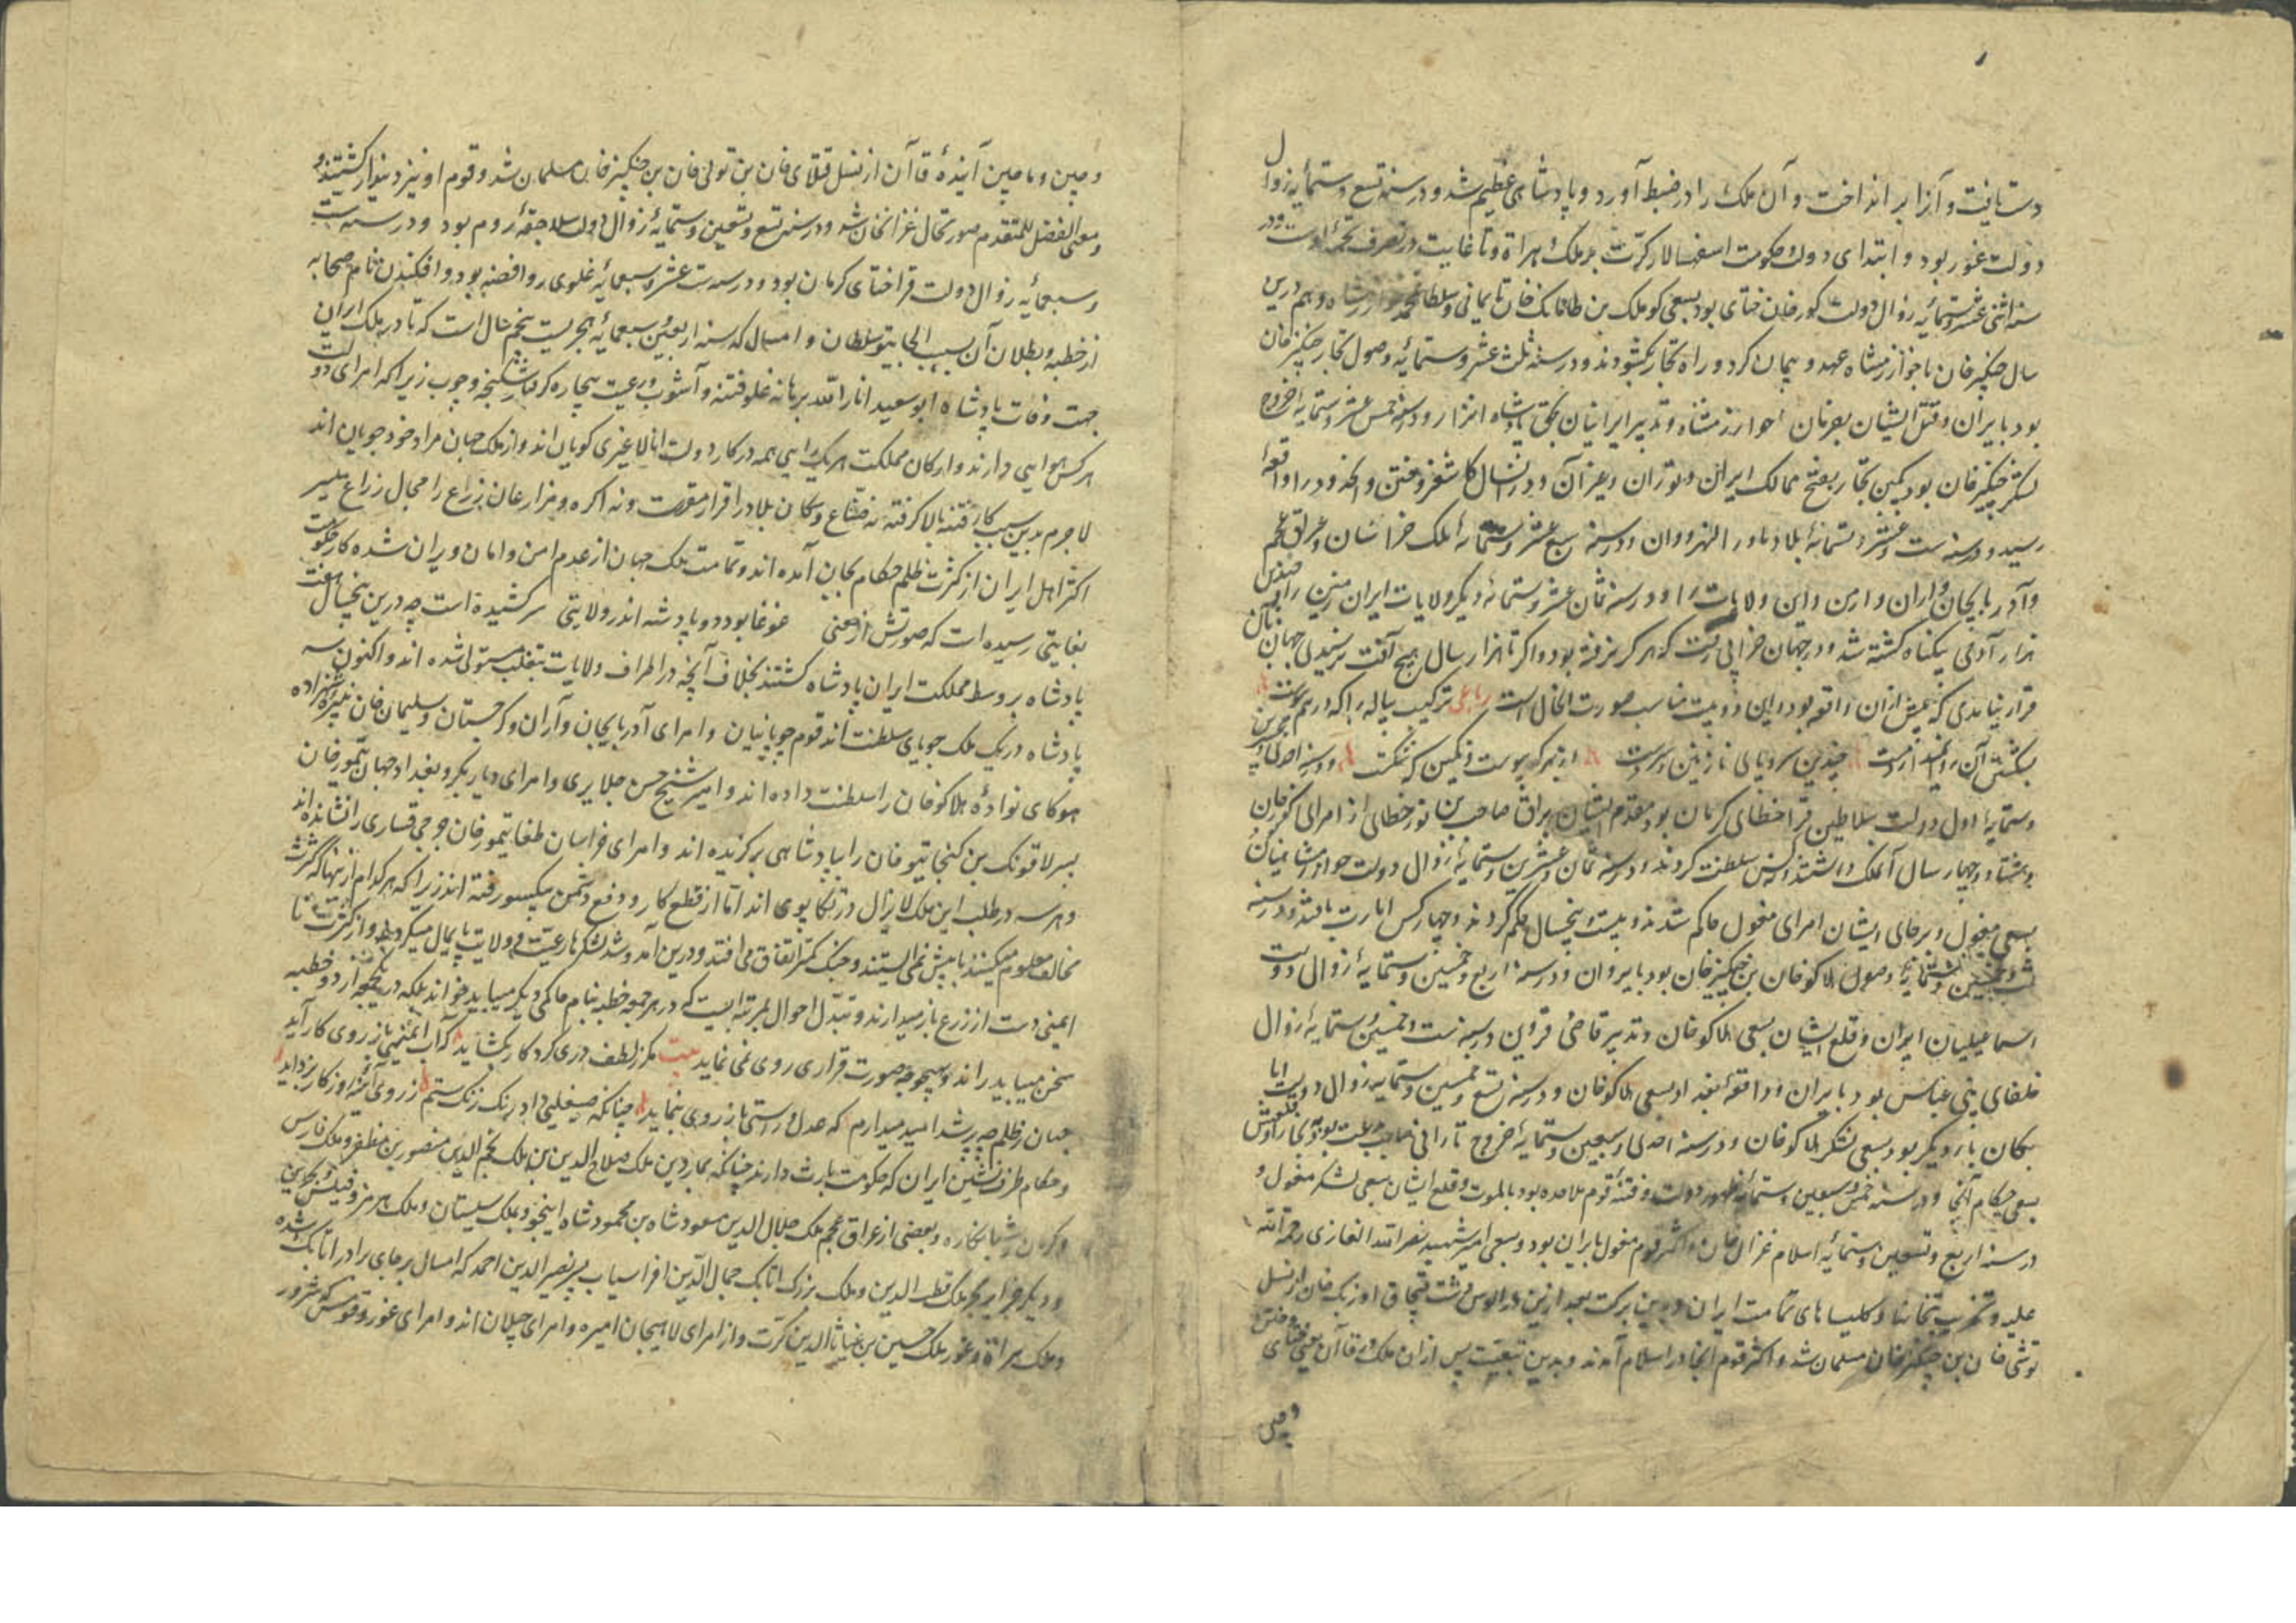 دست یافت و آنرا بر انداخت و آن ملک را در ضبط آورد و پادشاهی عظیم شد و در سنه تسع و ستمایه زوال
دولت غور بود و ابتدای دولت حکومت اسفهسالار کرت بر ملک هراة و تا غایت در تصرف تخمه اوست و در
سنه اثنی عشر و ستمایه زوال دولت کورخان ختای بود بسعی کوملک بن طایانک خان نایمانی و سلطان محمد خوارزمشاه و هم درین
سال چنگیزخان با خوارزمشاه عهد و پیمان کرد و راه تجار بگشودند و در سنه ثلث عشر و ستمایه وصول تجار چنگیزخان
بود بایران و قتل ایشان بفرمان خوارزمشاه و تدبیر ایرانیان بحق پادشاه اترار و در سنه خمس عشر و ستمایه خروج
لشکر چنگیزخان بود بکین تجار بفتح ممالک ایران و توران و غیر آن و در آنسال کاشغر و ختن و در واقعه
رسید و در سنه ست عشر و ستمایه ببلاد ماورا النهر و وان و در سنه سبع عشر و ستمایه بملک خراسان و عراق عجم
و آذربایجان و اران و ارمن و این ولایات را و در سنه ثمان عشر و ستمایه دیگر ولایات ایران زمین را و چندین
هزار آدمی بیگناه کشته شد و در جهان خرابی رفت که هرگز نرفته بود و اگر تا هزار سال هیچ آفت نرسیدی جهان بآن
قرار نیامدی که پیش ازان واقعه بود و این دو بیت مناسب صورت الحال است رباعی ترکیب پیاله را که در هم پیوست
بشکستن آن روا نمیدارد مست چندین سر و پای نازنین و سر و دست از مهر که پیوست و بکین که شکست و در سنه احدی و عشرین
و ستمایه اول دولت سلاطین قراخطای کرمان بود مقدم ایشان براق حاجب بن نور خطای از امرای کورخان
و هشتاد و چهار سال آن ملک داشتند و کس سلطنت کردند و در سنه ثمان و عشرین و ستمایه زوال دولت خوارزمشاهیان
بسعی مغول و بر جای ایشان امرای مغول حاکم شدند و بیست و پنجسال حکم کردند و چهار کس امارت یافتند و در سنه
ثلث و خمسین و ستمایه وصول هلاکو خان بن چنگیزخان بود بایروان و در سنه اربع و خمسین و ستمایه زوال دولت
اسماعیلیان ایران و قلع ایشان بسعی هلاکو خان و تدبیر قاضی قزوین در سنه ست و خمسین و ستمایه زوال
خلفای بنی عباس بود بایران و واقعه بغداد بسعی هلاکو خان و در سنه تسع و خمسین و ستمایه زوال دولت اتا
بکان بار دیگر بود بسعی لشکر هلاکو خان و در سنه احدی و سبعین و ستمایه خروج تارابی
بسعی حکام آنجا و در سنه خمس و سبعین و ستمایه ظهور دولت و فتنه قوم ملاحده بود بالموت و قلع ایشان بسعی لشکر مغول و
در سنه اربع و تسعین و ستمایه اسلام غزان خان و اکثر قوم مغول بایران بود و بسعی امیر شهید نصرالله الغازی رحمة الله
علیه و تخریب بتخانها و کلیساهای تمامت ایران و بدین برکت بعد ازین در الوس دشت قبچاق اوزبک خان از نسل
توشی خان بن چنگیزخان مسلمان شد و اکثر قوم آنجا در اسلام آمدند و بدین تبعیت پس ازان ملک قاآن یعنی ختای و ختن
و چین
و چین و ماچین آینده قاآن از نسل قبلای خان بن تولی خان بن چنگیز خان مسلمان شد و قوم او نیز دیندار گشتند و
و معنی الفضل للمتقدم صورتحال غزانخان شد و در سنه تسع و تسعین و ستمایه زوال دولت سلاجقه روم بود و در سنه ست
و سبعمائه زوال دولت قراختای کرمان بود و در سنه ست عشر و سبعمایه غلوی روافضه بود و افکندن نام صحابه
از خطبه و بطلان آن بسبب الجایتو سلطان و امسال که سنه اربعین و سبعمایه هجریست پنجم سال است که تا در ملک ایران
جهت وفات پادشاه ابو سعید انارالله برهانه غلو فتنه و آشوب و رعیت بیچاره گرفتار شکنجه و چوب زیرا که امرای دولت
هرکس هوایی دارند و ارکان مملکت هر یک رایی همه در کار دولت انا لا غیری گویان اند و از ملک جهان مراد خود جویان اند
لاجرم بدین سبب کار فتنه بالا گرفته نه صناع و سکان بلاد را قرار مقررست و نه اکره و مزارعان زراع را مجال زراع میسر
اکثر اهل ایران از کثرت ظلم حکام بجان آمده اند و تمامت ملک جهان از عدم امن و امان ویران شده کار حکومت
بغایتی رسیده است که صورتش از معنی غوغا بود دو پادشه اندر ولایتی سر کشیده است چه درین پنجسال هفت
پادشاه بر وسط مملکت ایران پادشاه گشتند بخلاف آنچه در اطراف ولایات بتغلب مستولی شده اند و اکنون سه
پادشاه در یک ملک جویای سلطنت اند قوم چوپانیان و امرای آذربایجان و آران و گرجستان و سلیمان خان نبیره شهزاده
هوکای نواده هلاکو خان را سلطنت داده اند و امیر شیخ حسن جلایری و امرای دیار بکر و بغداد جهان تیمور خان
بسر لاقونک بن کنجایتو خان را بپادشاهی برگزیده اند و امرای خراسان طغایتیمور خان جوجی قساری را نشانده اند
و هر سه در طلب این ملک لایزال در تکاپوی اند اما از قطع کار و دفع دشمن یکسو رفته اند زیرا که هر کدام از بنها که کثرت
مخالف معلوم میکنند با پیش نمی ایستند و جنگ کمتر اتفاق می افتد و درین آمد و شد لشکرها رعیت و ولایت پایمال میگردد و از کثرت نا
ایمنی دست از زرع باز میدارند و تبدل احوال بمرتبه ایست که در هر جمعه خطبه بنام حاکمی دیگر میباید خواند بلکه در یکجمعه از دو خطبه
سخن میباید راند و بهیچوجه صورت قراری روی نمی نماید بیت مگر ز لطف دری کردگار بگشاید که آب ایمنی باز روی کار آید
جهان ز ظلم چه پر شد امید میدارم که عدل و راستی باز روی بنماید چنانکه صیقلی داد رنک زنک ستم ز روی آئنه روزگار بزداید
و حکام طرف نشین ایران که حکومت بارث دارند چنانکه بماردین ملک صلاح الدین بن ملک نجم الدین منصور بن مظفر و ملک فارس
و کرمان و شبانکاره و بعضی از عراق عجم ملک جلال الدین مسعود شاه بن محمود شاه اینجو و ملک سیستان و ملک هرمز و قیس و بحرین
و دیگر جزایر بحر ملک قطب الدین و ملک بزرک اتابک جمال الدین افراسیاب پسر نصیر الدین احمد که امسال بر جای برادر اتابک شده
و ملک هراة و غور ملک حسین بن غیاث الدین کرت و از امرای لاهیجان امیره و امرای جیلان اند و امرای غور و قومس که غرور